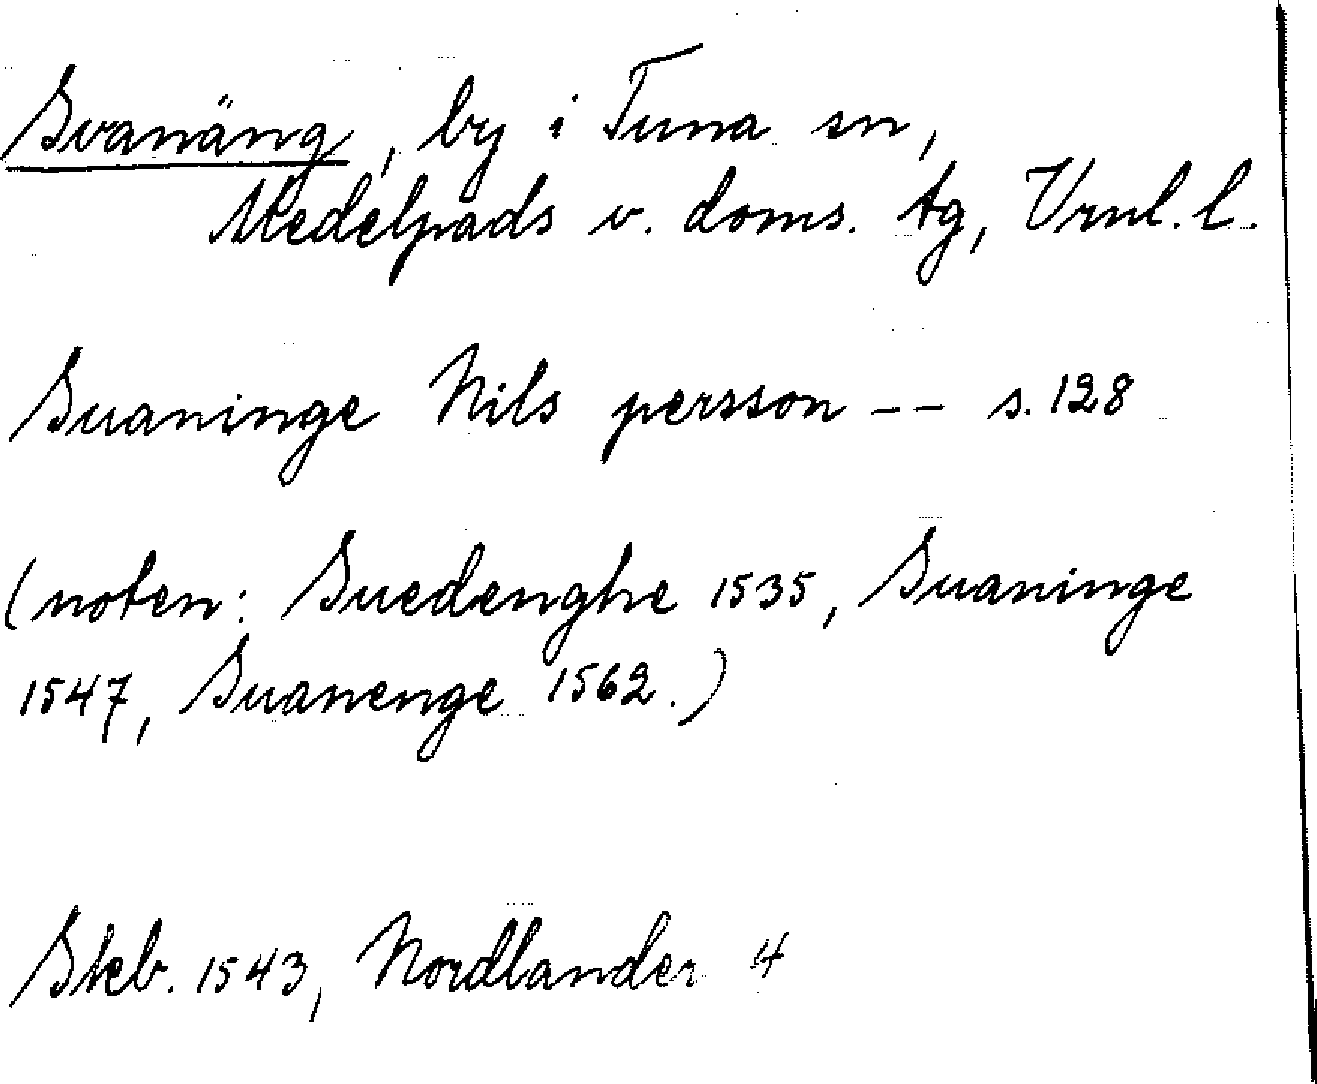 Svanäng, by i Tuna sn,
Medelpads v. doms. tg, Vrnl. l.
Suaninge Nils persson -- s. 128
(noten: Suedenghe 1535, Suaninge
1547, Suanenge 1562.)
Skb. 1543, Nordlander 4